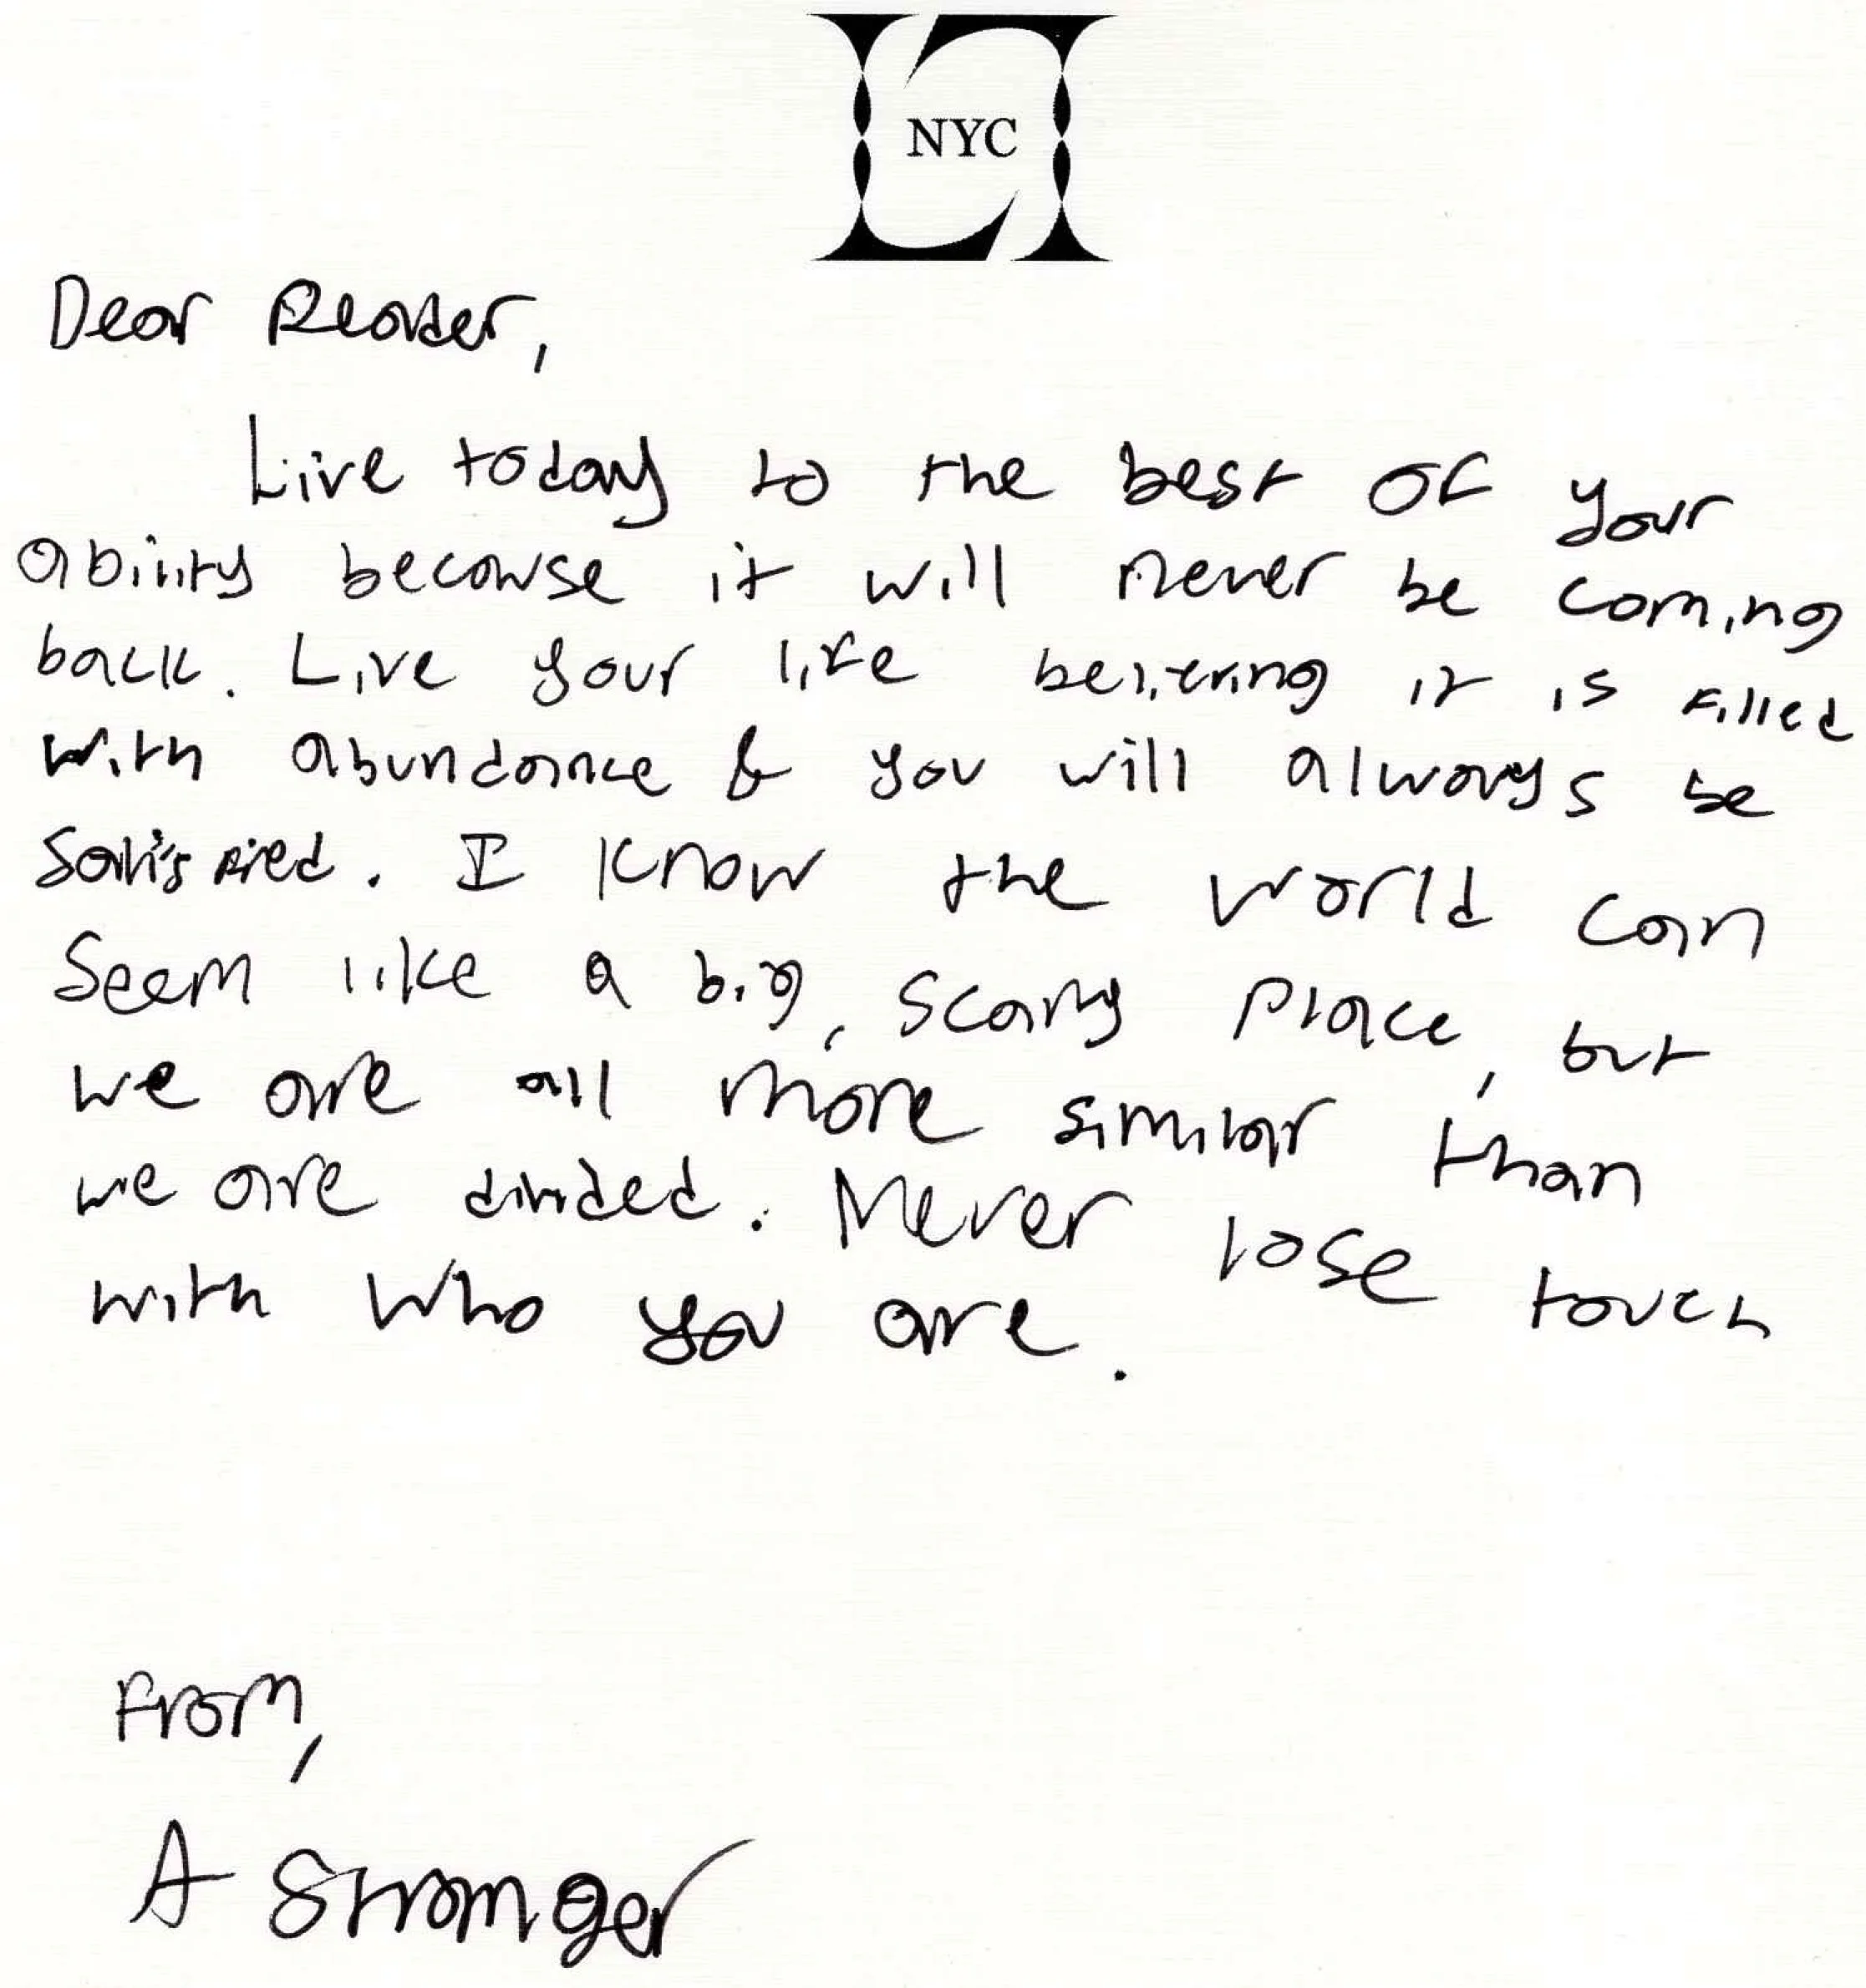 NYC
Dear Reader,
Live today to the best of your
ability because it will never be coming
back. Live your life believing it is filled
with abundance & you will always be
satisfied. I know the world can
seem like a big, scary place, but
we are all more similar than
we are divided. Never lose touch
with who you are.
From,
A Stranger